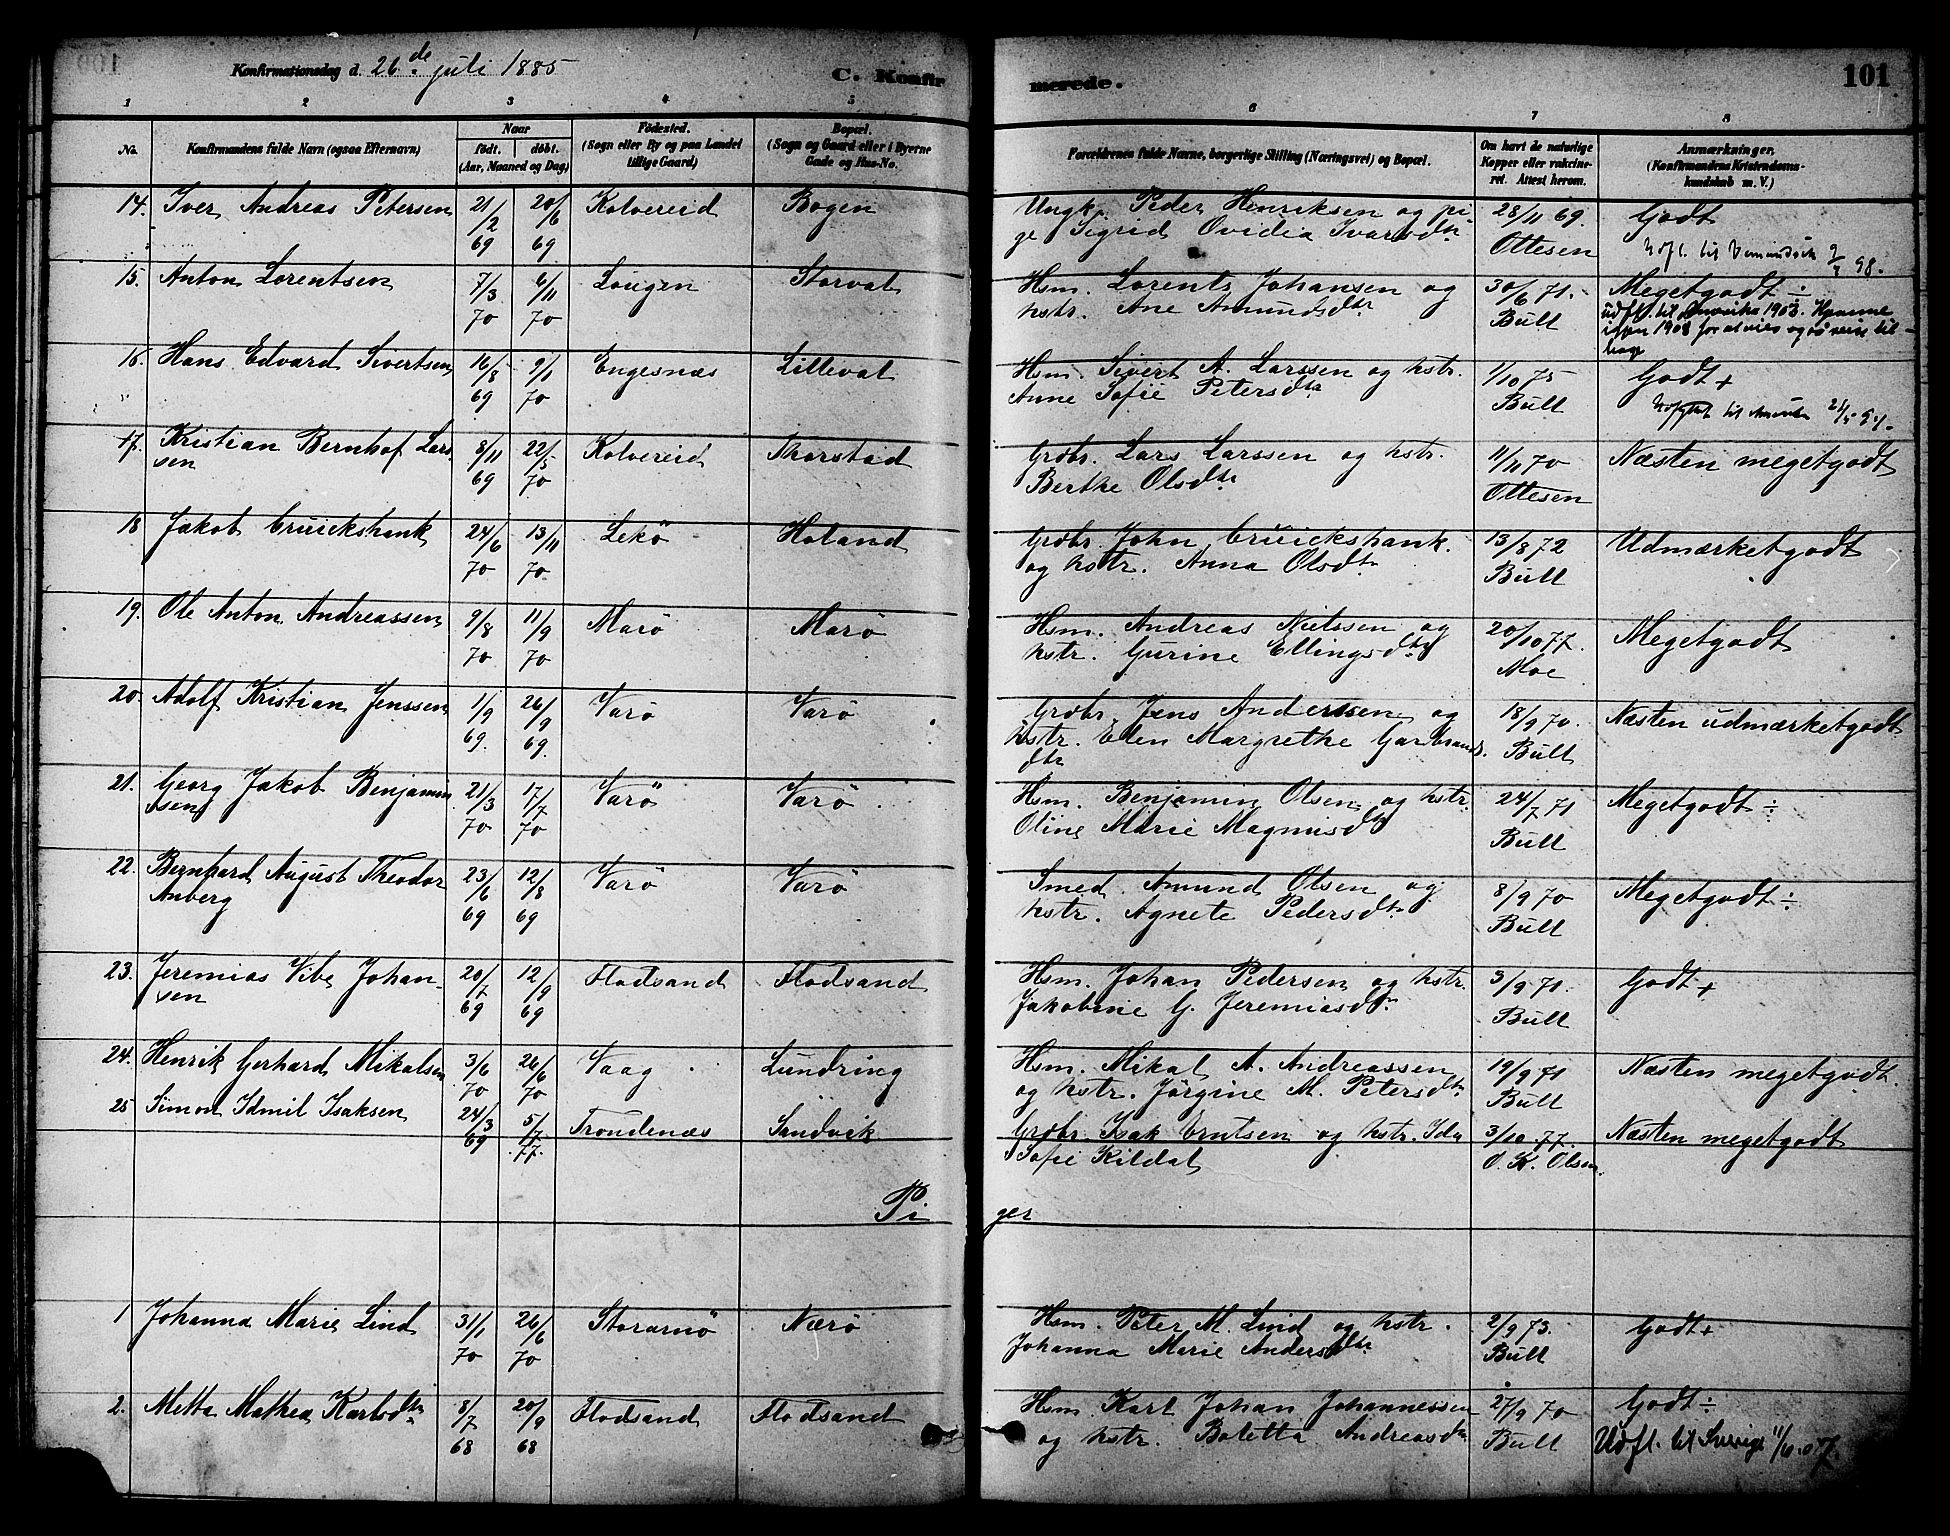 Konfirmationsdag d. 26de juli 1885
C. Konfir merede.
101
1 2 3 4 5 6 7 8
No. Konfirmandens fulde Navn (ogsaa Efternavn) Naar födt. döbt. (Aar, Maaned og Dag) Födested. (Sogn eller By og paa Landet tillige Gaard) Bopæl. (Sogn og Gaard eller i Byerne Gade og Hus-No. Forældrenes fulde Navne, borgerlige Stilling (Næringsvei) og Bopæl. Om havt de naturlige Kopper eller vaccineret. Attest herom. Anmærkninger. (Konfirmandens Kristendomskundskab m. V.)
14. Iver Andreas Petersen 21/2 69 20/6 69 Kolvereid Bogen Ungk. Peder Henriksen og pi 28/11 69. Godt
ge Sigrid Ovidia Ivarsdtr Ottesen Udfl. til 98.
15. Anton Lorentsen 7/3 70 6/11 70 Lougen Storval Hsm. Lorents Johansen og 30/6 71. Megetgodt ÷
hstr. Ane Amundsdtr Bull udfl. til Amerika 1903. Hjemme
igjen 1908 for at vies og så reise til
bage
16. Hans Edvard Sivertsen 16/8 69 9/1 70 Engesnæs Lilleval Hsm. Sivert A. Larssen og hstr. 1/10 75 Godt +
Anne Sofie Petersdtr Bull til
17. Kristian Bernhof Lars- 8/11 69 22/5 70 Kolvereid Thorstad Grdbr. Lars Larssen og hstr. 11/11 70 Næsten megetgodt
sen Berthe Olsdtr Ottesen
18 Jakob Cruickshank 24/6 70 13/11 70. Lekö Holand Grdbr. John Cruickshank. 13/8 72 Udmærketgodt
og hstr. Anna Olsdtr Bull
19. Ole Anton Andreassen 9/8 70 11/9 70 Marö Marö Hsm. Andreas Nielssen og 20/10 77. Megetgodt
hstr. Gurine Ellingsdtr Moe
20 Adolf Kristian Jenssen 1/9 69. 26/9 69. Varö Varö Grdbr. Jens Anderssen og 18/9 70. Næsten udmærketgodt
hstr. Elen Margrethe Garbrands. Bull
dtr
21. Georg Jakob Benjamin 21/3 70 17/7 70 Varö Varö Hsm. Benjamin Olsen og hstr. 24/7 71 Megetgodt ÷
sen Oline Marie Magnusdtr Bull
22. Bernhard August Theodor 23/6 69 12/8 69 Varö Varö Smed Amund Olsen og 8/9 70 Megetgodt ÷
Anberg hstr. Agnete Pedersdtr Bull
23. Jeremias Vibe Johan- 20/7 69 12/9 69 Flodsand Flodsand Hsm. Johan Pedersen og hstr. 3/9 71. Godt +
sen Jakobine G. Jeremiasdtr Bull
24. Henrik Gerhard Mikalsen 3/6 70 26/6 70 Vaag Lundring Hsm. Mikal A. Andreassen 19/9 71 Næsten megetgodt.
og hstr. Jörgine M. Petersdtr Bull
25 Simon Idmil Isaksen 24/3 69 5/7 77. Trondenæs Sandvik Grdbr. Isak Erntsen og hstr. Ida 3/10 77. Næsten megetgodt
Sofie Kildal O. K. Olsen.
Pi ger
1 Johanna Marie Lind 31/1 70 26/6 70 Storarnö Nærö Hsm. Peter M. Lind og hstr. 2/9 73. Godt +
Johanna Marie Andersdtr Bull
2. Metta Mathea Karlsdtr 8/7 68 20/9 68 Flodsand Flodsand Hsm Karl Johan Johannessen 27/9 70 Godt ÷
og hstr. Boletta Andreasdtr Bull Udfl. til Sverige 11/6.07.